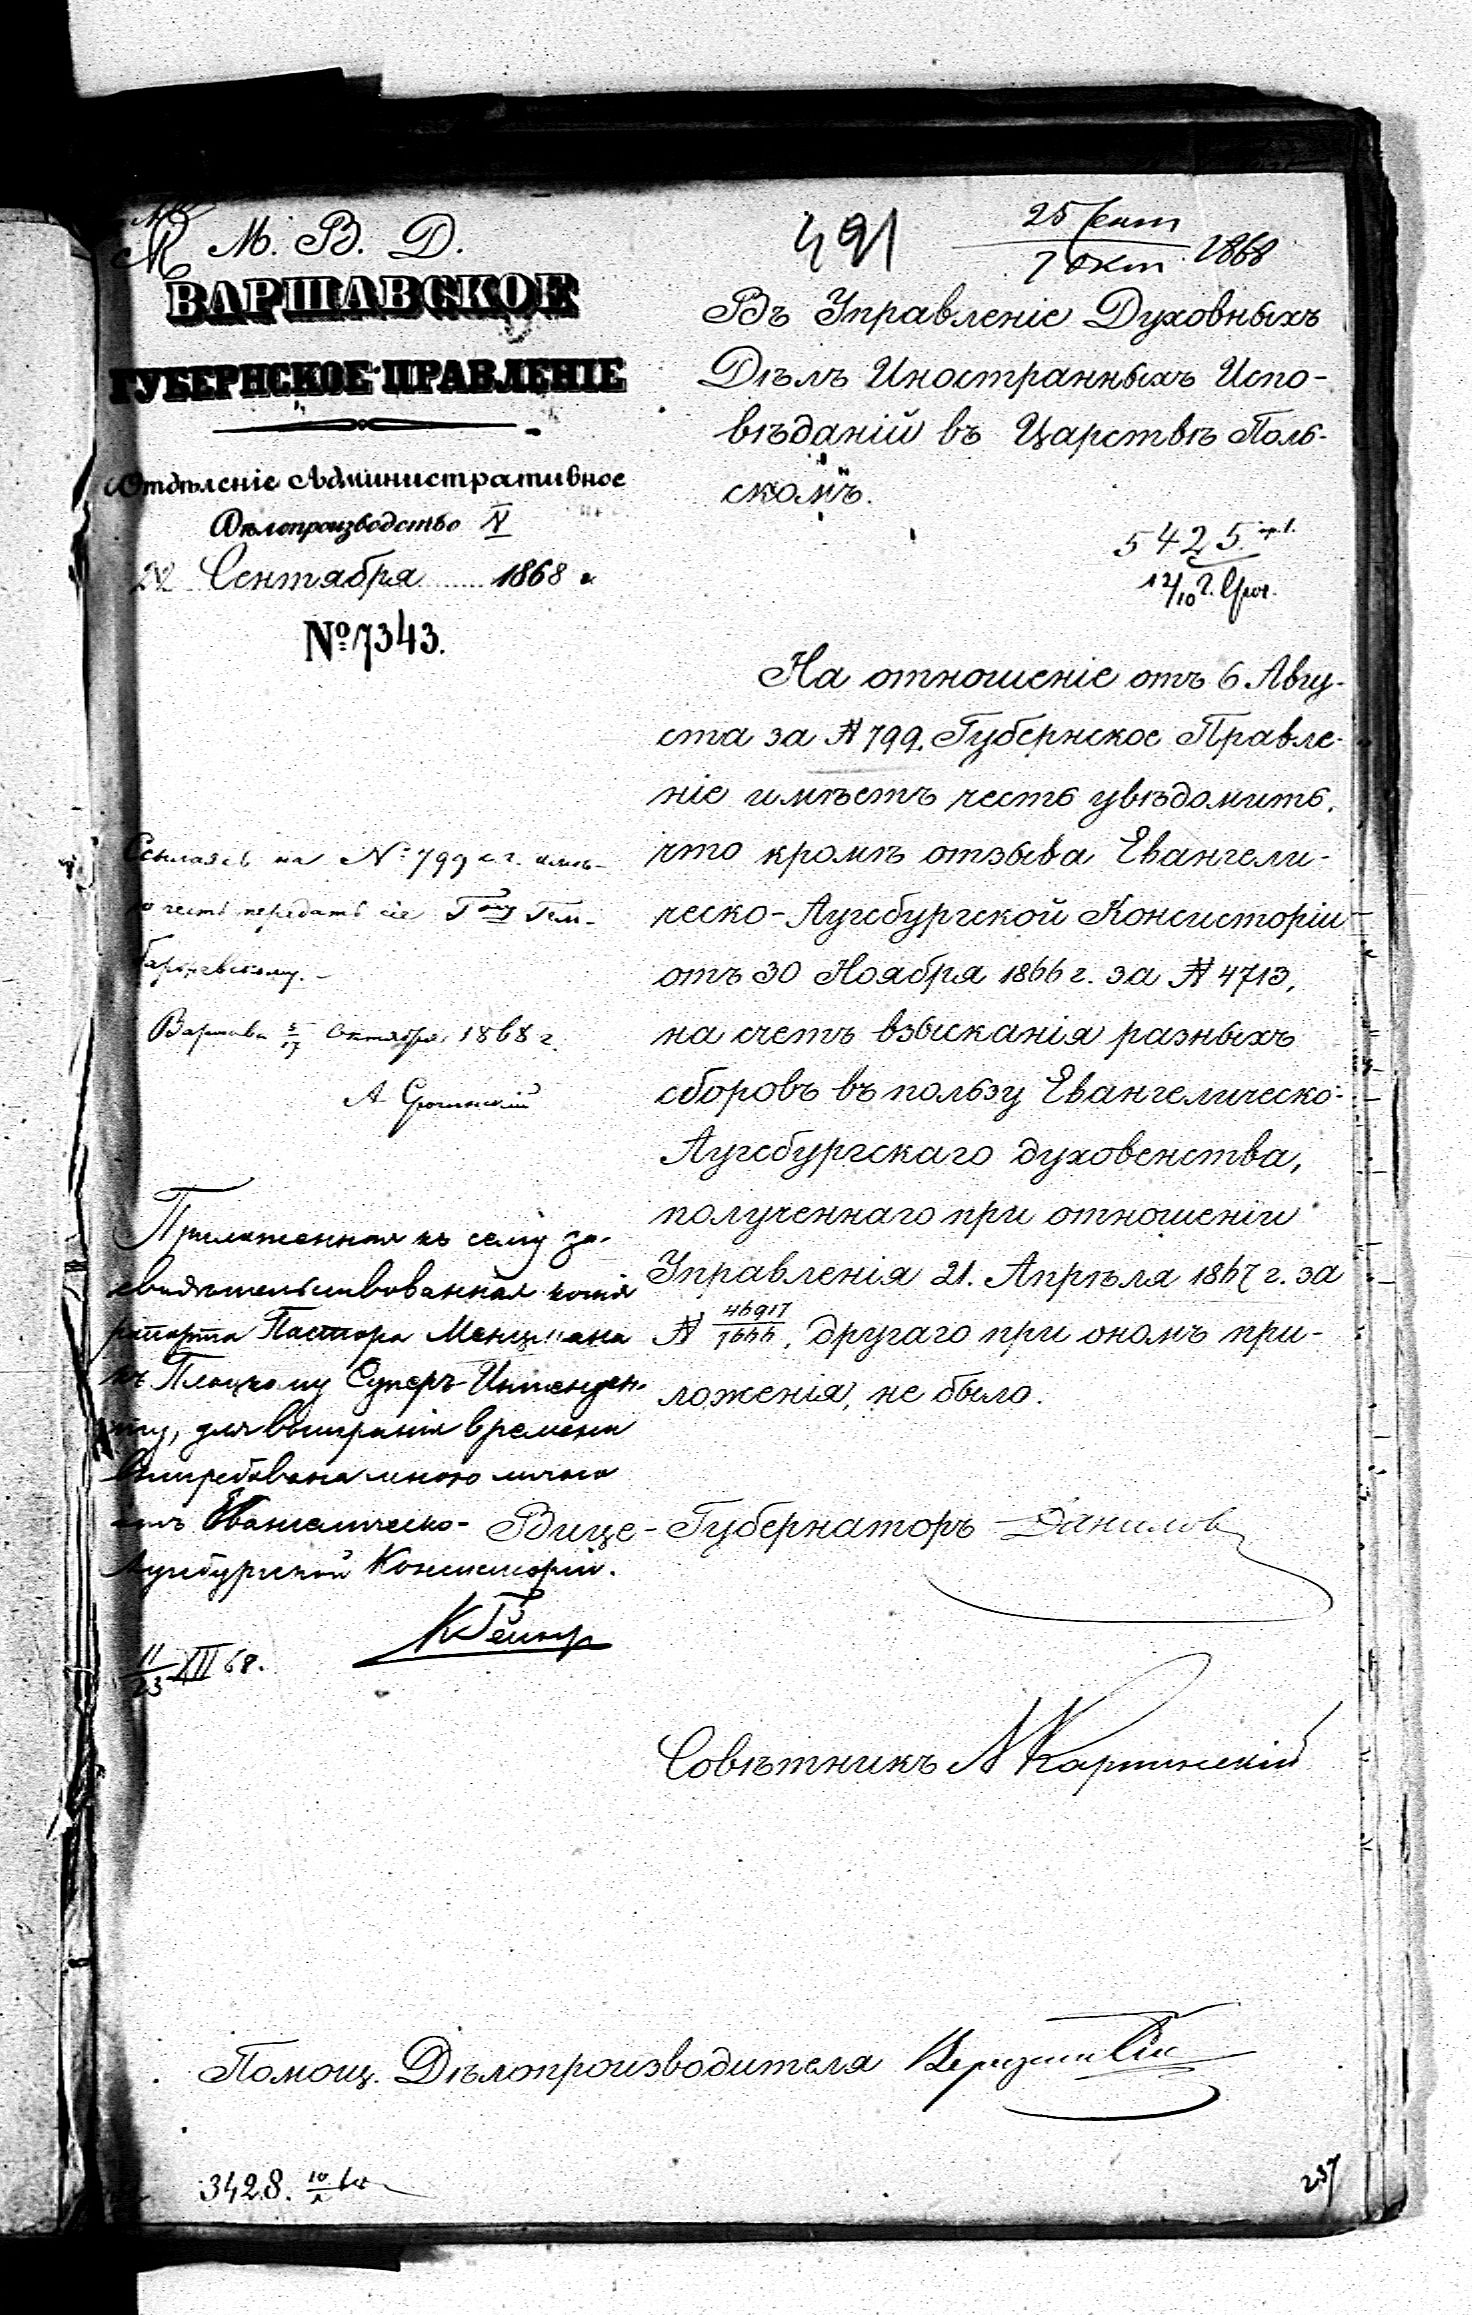 М. В. Д.
ВАРШАВСКОЕ
ГУБЕРНСКОЕ ПРАВЛЕНІЕ
Отдѣленіе Административное
Дѣлопроизводство IV
Сентября 1868 г.
№ 7343.
491
25 Сент
7 Окт 1868
Въ Управленіе Духовныхъ
Дѣлъ Иностранныхъ Испо-
вѣданій въ Царствѣ Поль-
скомъ.
5425.
12/10
На отношеніе отъ 6 Авгу-
ста за № 799, Губернское Правле-
ніе имѣетъ честь увѣдомить,
что кромѣ отзыва Евангели-
ческо-Аугсбургской Консисторіи
отъ 30 Ноября 1866 г. за № 4713,
на счетъ взысканія разныхъ
сборовъ въ пользу Евангелическо-
Аугсбургскаго духовенства,
полученнаго при отношеніи
Управленія 21. Апрѣля 1867 г. за
№ 46917/7666, другаго при ономъ при-
ложенія, не было.
Вице-Губернаторъ Данилов
Совѣтникъ
Помощ. Дѣлопроизводителя
Ссылаясь на № 799 с. г. имѣ-
ю честь передать сіе Г-ну Гем-
Варшава 5/17 Октября 1868 г.
Приложенная къ сему за-
свидѣтельствованная копія
рапорта Пастора Менцмана
къ Плоцкому Суперъ-Интенден-
ту, для выиграния времени
вытребована мною лично
отъ Евангелическо-
Аугсбургской Консисторіи.
11/23 XII 68.
3428.
237